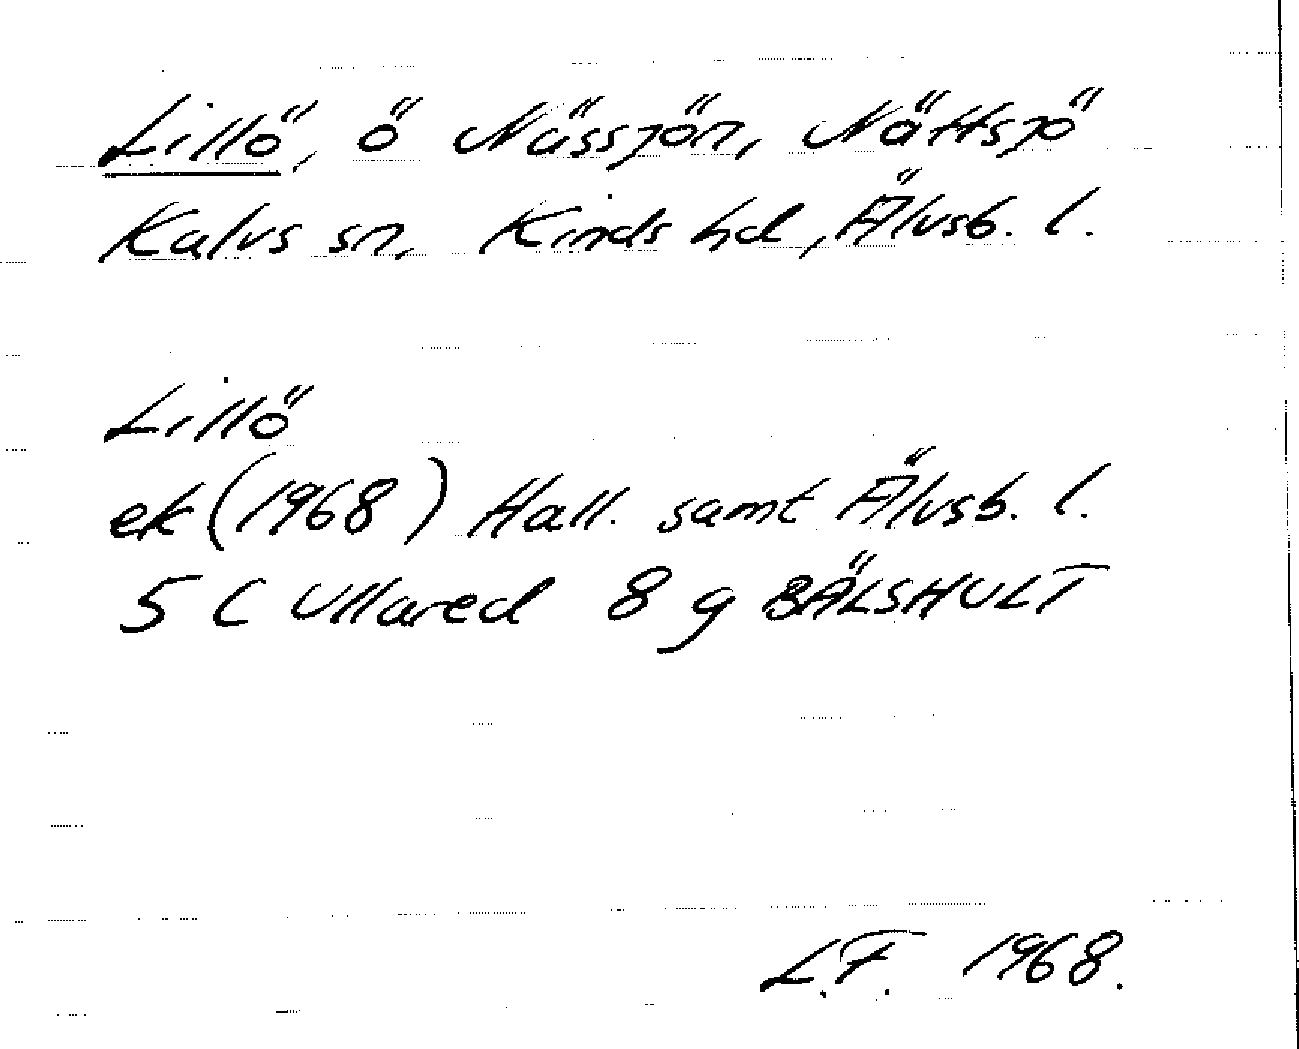 Lillö, ö Nässjön, Nättsjö
Kalvs sn, Kinds hd, Älvsb. l.
Lillö
ek (1968) Hall. samt Älvsb. l.
5 C Ullared 8 g BÄLSHULT
L.F. 1968.